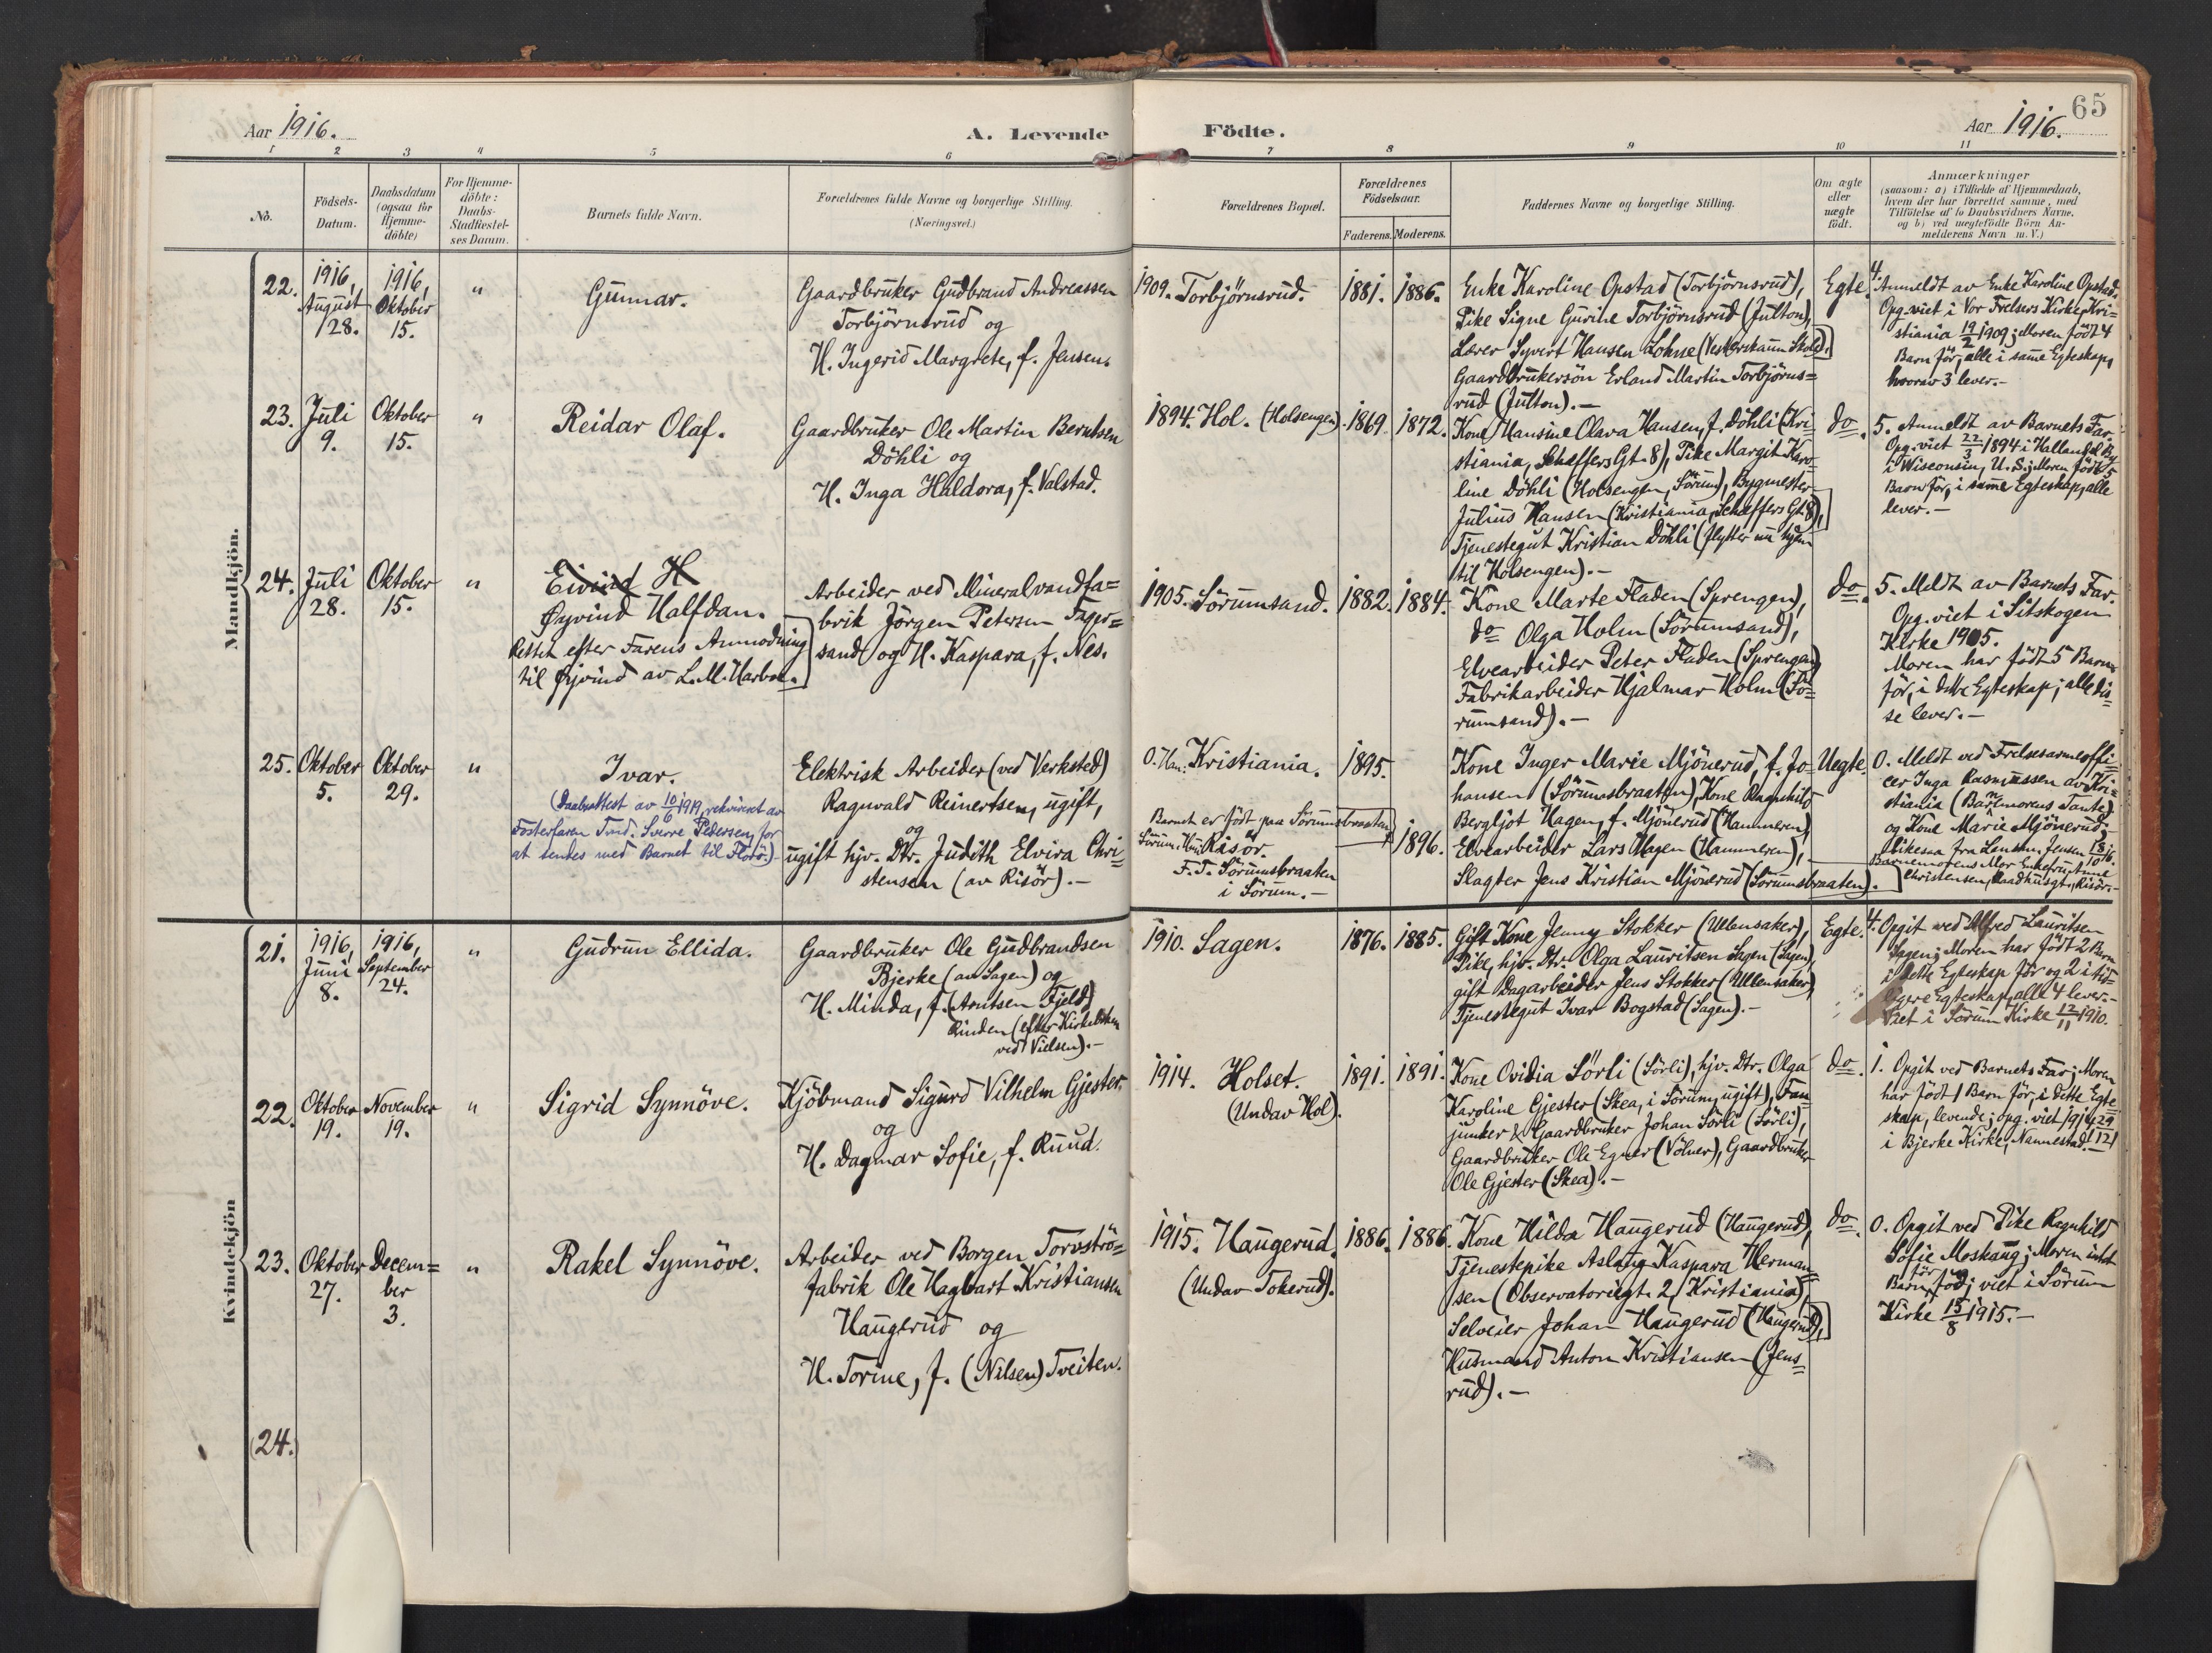 65
Aar 1916.
A. Levende Födte.
Aar 1916.
1 2 3 4 5 6 7 8 9 10 11
No.
Födsels-
Datum.
Daabsdatum
(ogsaa for
Hjemme-
döbte)
For Hjemme-
döbte:
Daabs-
Stadfæstel-
ses Datum.
Barnets fulde Navn.
Forældrenes fulde Navne og borgerlige Stilling.
(Næringsvei.)
Forældrenes Bopæl.
Forældrenes
Födselsaar.
Faderens. Moderens.
Faddernes Navne og borgerlige Stilling.
Om ægte
eller
uægte
födt.
Anmærkninger
(saasom: a) i Tilfælde af Hjemmedaab,
hvem der har forrettet samme, med
Tilföielse af to Daabsvidners Navne,
og b) ved uægtefödte Börn An-
melderens Navn m. V.)
Mandkjön.
22.
1916,
August
28.
1916,
Oktober
15.
"
Gunnar.
Gaardbruker Gudbrand Andreassen
Torbjörnsrud og
H. Ingerid Margrete, f. Jensen.
1909. Torbjörnsrud.
1881.
1886.
Enke Karoline Opstad (Torbjörnsrud),
Pike Signe Gurine Torbjörnsrud (Julton),
Lærer Syvert Hansen Lohne (Vesterskaun Skole).
Gaardbrukersön Erland Martin Torbjörns=
rud (Julton).-
Egte.
4. Anmeldt av Enke Karoline Opstad.
Opg. viet i Vor Frelsers Kirke, Kri-
stiania 19/2 1909; Moren födt 4
Barn för, alle i samme Egteskap,
hvorav 3 lever.-
23.
Juli
9.
Oktober
15.
"
Reidar Olaf.
Gaardbruker Ole Martin Berntsen
Döhli og
H. Inga Haldora, f. Valstad.
1894. Hol. (Holsengen).
1869
1872.
Kone Hansine Olava Hansen, f. Döhli (Kri-
stiania, Scheffers Gt. 8), Pike Margit Karo-
line Döhli (Holsengen, Sörum), Bygmester
Julius Hansen (Kristiania, Scheffers Gt. 8),
Tjenestegut Kristian Döhli (flytter nu hjem
til Holsengen).-
do.
5. Anmeldt av Barnets Far.
Opg. viet 22/3 1894 i
i Wisconsin, U. S.; Moren födt 5
Barn för, i samme Egteskap, alle
lever.-
24.
Juli
28.
Oktober
15.
"
Eivind H
Øyvind Halfdan.
Rettet efter Farens Anmodning
til Øivind av L. M.
Arbeider ved Mineralvandfa=
brik Jörgen Petersen Fager=
sand og H. Kaspara, f. Nes.
1905. Sörumsand.
1882.
1884.
Kone Marte Fladen (Sprengen),
do Olga Holm (Sörumsand),
Elvearbeider Peter Fladen (Sprengen)
Fabrikarbeider Hjalmar Holm (Sö=
rumsand).-
do.
5. Meldt av Barnets Far.
Opg. viet i Sitskogen
Kirke 1905.
Moren har födt 5 Barn
för, i dette Egteskap; alle dis=
se lever.-
25.
Oktober
5.
Oktober
29.
"
Ivar.
(Daabsattest av 10/6 1919, rekvireret av
Fosterfaren Tmd. Sverre Pedersen, for
at sendes med Barnet til Florö.)
Elektrisk Arbeider (ved Verksted)
Ragnvald Reinertsen, ugift,
og
ugift hjv. Dtr. Judith Elvira Chri=
stensen (av Risör).-
0. Han: Kristiania.
Barnet er födt paa Sörumsbraaten
Sörum. Hun: Risör.
F. T. Sörumsbraaten
i Sörum.-
1895.
1896.
Kone Inger Marie Mjönerud, f. Jo-
hansen (Sörumsbraaten), Kone Ragnhild
Bergljot Hagen, f. Mjönerud (Hammeren),
Elvearbeider Lars Hagen (Hammeren),
Slagter Jens Kristian Mjönerud (Sörumsbraaten).
Uegte.
0. Meldt ved Frelsesarmeoffi=
cer Inga Rasmussen av Kri=
stiania (Barnemorens Tante)
og Kone Marie Mjönerud;
likesaa fra Lensm. Jensen 18/10 16.
Barnemorens Mor Enkefru Anne
Christensen, Raadhusgt., Risör.-
Kvindekjön
21.
1916,
Juni
8.
1916,
September
24.
"
Gudrun Ellida.
Gaardbruker Ole Gudbrandsen
Bjerke (av Sagen) og
H. Minda, f. (Arntsen Fjeld)
Rinden (efter Kirkeboken
ved Vielsen).-
1910. Sagen.
1876.
1885.
Gift Kone Jenny Stokker (Ullensaker),
Pike, hjv. Dtr. Olga Lauritsen Sagen (Sagen),
gift Dagarbeider Jens Stokker (Ullensaker),
Tjenestegut Ivar Bogstad (Sagen).-
Egte.
4. Opgit ved Alfred Lauritsen
Sagen; Moren har födt 2 Barn
i dette Egteskap för og 2 i tid-
ligere Egteskap, alle 4 lever.-
Viet i Sörum Kirke 12/11 1910.
22.
Oktober
19.
November
19.
"
Sigrid Synnöve.
Kjöbmand Sigurd Vilhelm Gjester
og
H. Dagmar Sofie, f. Ruud.
1914. Holset.
(Undav Hol).
1891.
1891.
Kone Ovidia Sörli (Sörli), hjv. Dtr. Olga
Karoline Gjester (Skea, i Sörum, ugift), Fan=
junker & Gaardbruker Johan Sörli (Sörli),
Gaardbruker Ole Egner (Völner), Gaardbruker
Ole Gjester (Skea).-
do.
1. Opgit ved Barnets Far; Moren
har födt 1 Barn för, i dette Egte=
skap, levende; opg. viet 1914 29/12
i Bjerke Kirke, Nannestad.
23.
Oktober
27.
Decem=
ber
3.
"
Rakel Synnöve.
Arbeider ved Borgen Torvströ=
fabrik Ole Hagbart Kristiansen
Haugerud og
H. Torine, f. (Nilsen) Tveiten.
1915. Haugerud.
(Undav Tokerud).
1886.
1886.
Kone Hilda Haugerud (Haugerud),
Tjenestepike Aslaug Kaspara Herman=
sen (Observatoriegt. 2, Kristiania),
Selveier Johan Haugerud (Haugerud),
Husmand Anton Kristiansen (Jens=
rud).-
do.
0. Opgit ved Pike Ragnhild
Sofie Moskaug; Moren intet
Barn för föd; viet i Sörum
Kirke 15/8 1915.-
(24.)